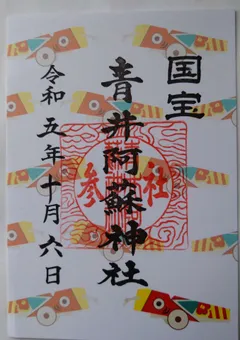 国宝
青井阿蘇神社
参社
令和五年十月六日